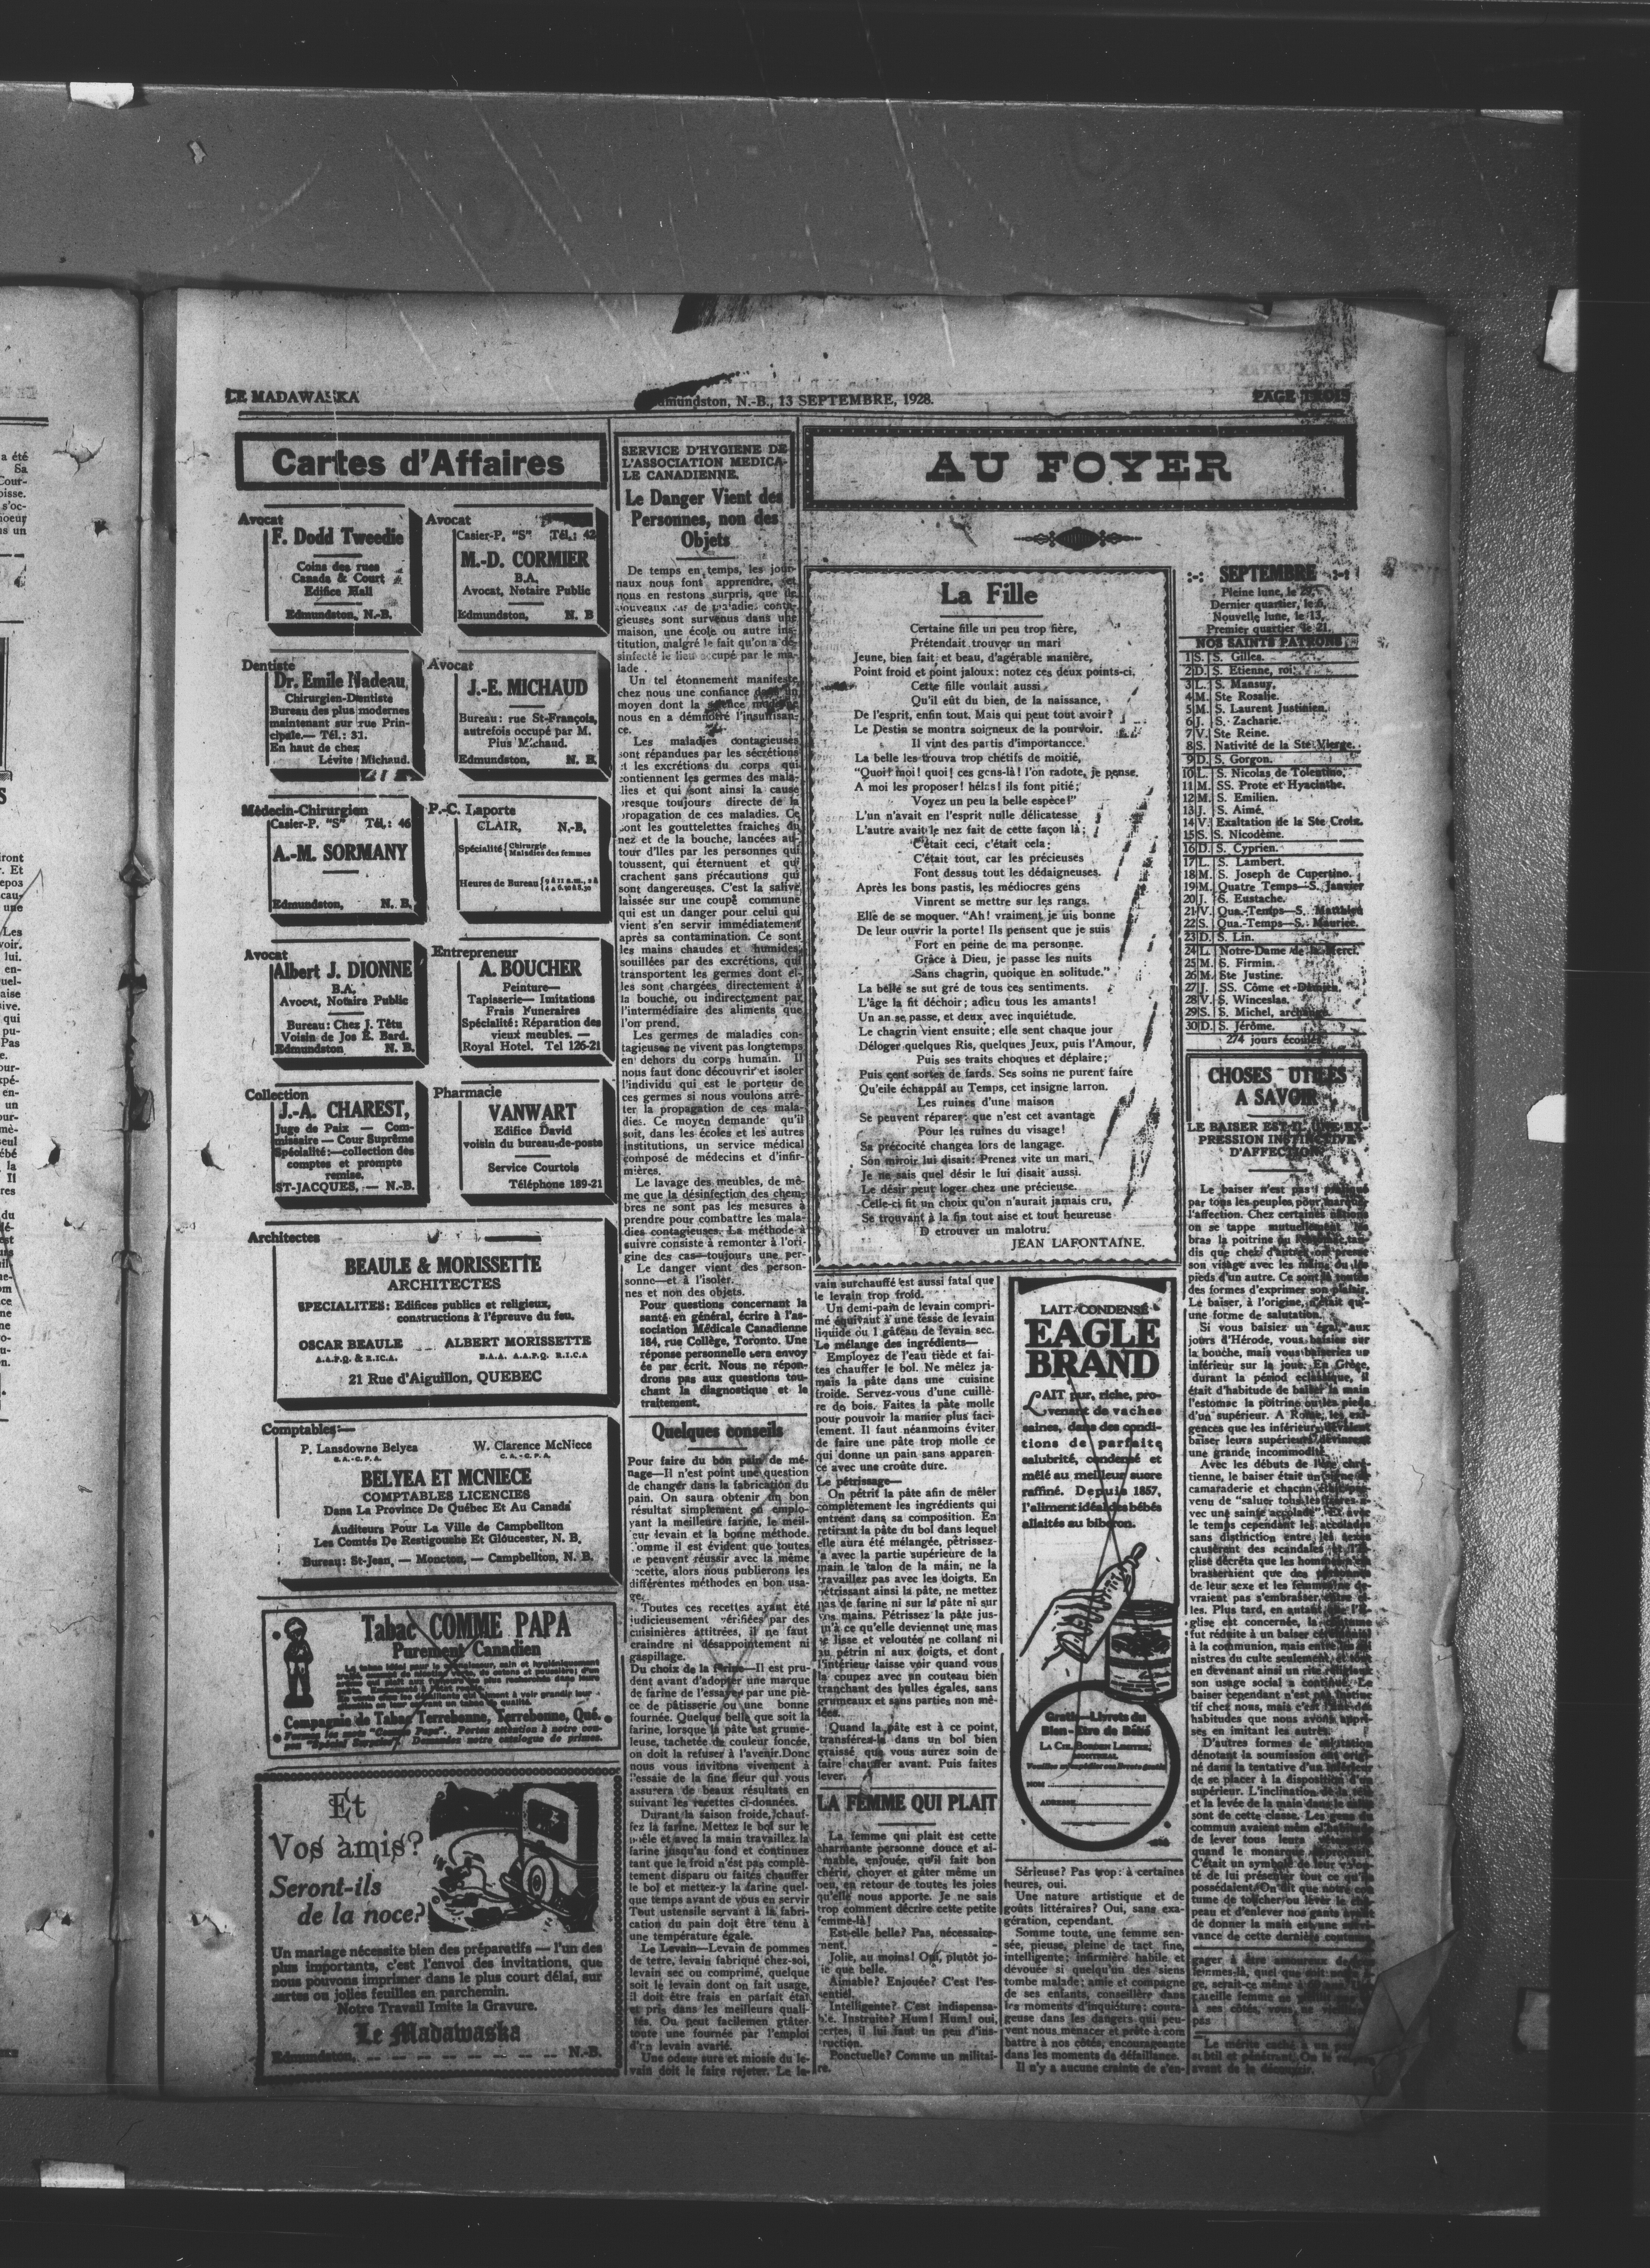 LE MADAWASKA
Edmundston, N.-B., 13 SEPTEMBRE, 1928.
PAGE TROIS
Cartes d'Affaires
Avocat
F. Dodd Tweedie
Coins des rues
Canada & Court
Edifice Hall
Edmundston, N.-B.
Avocat
Casier-P. "S" Tél.: 42
M.-D. CORMIER
B.A.
Avocat, Notaire Public
Edmundston, N. B
Dentiste
Dr. Emile Nadeau,
Chirurgien-Dentiste
Bureau des plus modernes
maintenant sur rue Prin-
cipale.— Tél.: 31.
En haut de chez
Lévite Michaud.
Avocat
J.-E. MICHAUD
Bureau: rue St-François,
autrefois occupé par M.
Pius Michaud.
Edmundston, N. B.
Médecin-Chirurgien
Casier-P. "S" Tél.: 46
A.-M. SORMANY
Edmundston, N. B.
P.-C. Laporte
CLAIR, N.-B.
Spécialité { Chirurgie
Maladies des femmes
Heures de Bureau
Avocat
Albert J. DIONNE
B.A.
Avocat, Notaire Public
Bureau: Chez J. Têtu
Voisin de Jos E. Bard.
Edmundston N. B.
Entrepreneur
A. BOUCHER
Peinture—
Tapisserie— Imitations
Frais Funeraires
Spécialité: Réparation des
vieux meubles. —
Royal Hotel. Tel 126-21
Collection
J.-A. CHAREST,
Juge de Paix — Com-
missaire — Cour Suprême
Spécialité:—collection des
comptes et prompte
remise.
ST-JACQUES, — N.-B.
Pharmacie
VANWART
Edifice David
voisin du bureau-de-poste
Service Courtois
Téléphone 189-21
Architectes
BEAULE & MORISSETTE
ARCHITECTES
SPECIALITES: Edifices publics et religieux,
constructions à l'épreuve du feu.
OSCAR BEAULE ALBERT MORISSETTE
A.A.P.Q. & R.I.C.A. B.A.A. A.A.P.Q. R.I.C.A
21 Rue d'Aiguillon, QUEBEC
Comptables:—
P. Lansdowne Belyea W. Clarence McNiece
C.A.-C.P.A. C.A.-C.P.A.
BELYEA ET MCNIECE
COMPTABLES LICENCIES
Dans La Province De Québec Et Au Canada
Auditeurs Pour La Ville de Campbellton
Les Comtés De Restigouche Et Gloucester, N. B.
Bureau: St-Jean, — Moncton, — Campbellton, N. B.
Tabac COMME PAPA
Purement Canadien
Compagnie de Tabac Terrebonne, Terrebonne, Qué.
Et
Vos amis?
Seront-ils
de la noce?
Un mariage nécessite bien des préparatifs — l'un des
plus importants, c'est l'envoi des invitations, que
nous pouvons imprimer dans le plus court délai, sur
cartes ou jolies feuilles en parchemin.
Notre Travail Imite la Gravure.
Le Madawaska
Edmundston, N.-B.
SERVICE D'HYGIENE DE
L'ASSOCIATION MEDICA-
LE CANADIENNE.
Le Danger Vient des
Personnes, non des
Objets
De temps en temps, les jour-
naux nous font apprendre, et
nous en restons surpris, que de
nouveaux cas de maladies conta-
gieuses sont survenus dans une
maison, une école ou autre ins-
titution, malgré le fait qu'on a dé-
sinfecté le lieu occupé par le ma-
lade.
Un tel étonnement manifeste
chez nous une confiance dans un
moyen dont la science moderne
nous en a démontré l'insuffisan-
ce.
Les maladies contagieuses
sont répandues par les sécrétions
et les excrétions du corps qui
contiennent les germes des mala-
dies et qui sont ainsi la cause
presque toujours directe de la
propagation de ces maladies. Ce
sont les gouttelettes fraiches du
nez et de la bouche, lancées au-
tour d'lles par les personnes qui
toussent, qui éternuent et qui
crachent sans précautions qui
sont dangereuses. C'est la salive
laissée sur une coupe commune
qui est un danger pour celui qui
vient s'en servir immédiatement
après sa contamination. Ce sont
les mains chaudes et humides,
souillées par des excrétions, qui
transportent les germes dont el-
les sont chargées directement à
la bouche, ou indirectement par
l'intermédiaire des aliments que
l'on prend.
Les germes de maladies con-
tagieuses ne vivent pas longtemps
en dehors du corps humain. Il
nous faut donc découvrir et isoler
l'individu qui est le porteur de
ces germes si nous voulons arrê-
ter la propagation de ces mala-
dies. Ce moyen demande qu'il
soit, dans les écoles et les autres
institutions, un service médical
composé de médecins et d'infir-
mières.
Le lavage des meubles, de mê-
me que la désinfection des cham-
bres ne sont pas les mesures à
prendre pour combattre les mala-
dies contagieuses. La méthode à
suivre consiste à remonter à l'ori-
gine des cas—toujours une per-
Le danger vient des person-
sonne—et à l'isoler.
nes et non des objets.
Pour questions concernant la
santé en général, écrire à l'as-
sociation Médicale Canadienne
184, rue Collège, Toronto. Une
réponse personnelle sera envoy
ée par écrit. Nous ne répon-
drons pas aux questions tou-
chant la diagnostique et le
traitement.
Quelques conseils
Pour faire du bon pain de mé-
nage—Il n'est point une question
de changer dans la fabrication du
pain. On saura obtenir un bon
résultat simplement en emplo-
yant la meilleure farine, le meil-
leur levain et la bonne méthode.
Comme il est évident que toutes
ne peuvent réussir avec la même
recette, alors nous publierons les
différentes méthodes en bon usa-
ge.
Toutes ces recettes ayant été
judicieusement vérifiées par des
cuisinières attitrées, il ne faut
craindre ni désappointement ni
gaspillage.
Du choix de la farine—Il est pru-
dent avant d'adopter une marque
de farine de l'essayer par une piè-
ce de pâtisserie ou une bonne
fournée. Quelque belle que soit la
farine, lorsque la pâte est grume-
leuse, tachetée de couleur foncée,
on doit la refuser à l'avenir.Donc
nous vous invitons vivement à
l'essaie de la fine fleur qui vous
assurera de beaux résultats en
suivant les recettes ci-données.
Durant la saison froide, chauf-
fez la farine. Mettez le bol sur le
poêle et avec la main travaillez la
farine jusqu'au fond et continuez
tant que le froid n'est pas complè-
tement disparu ou faites chauffer
le bol et mettez-y la farine quel-
que temps avant de vous en servir
Tout ustensile servant à la fabri-
cation du pain doit être tenu à
une température égale.
Le Levain—Levain de pommes
de terre, levain fabriqué chez-soi,
levain sec ou comprimé, quelque
soit le levain dont on fait usage,
il doit être frais en parfait état
et pris dans les meilleurs quali-
tés. On peut facilemen gtâter
toute une fournée par l'emploi
d'un levain avarié.
Une odeur sure et moisie du le-
vain doit le faire rejeter. Le le-
AU FOYER
La Fille
Certaine fille un peu trop fière,
Prétendait trouver un mari
Jeune, bien fait et beau, d'agérable manière,
Point froid et point jaloux: notez ces deux points-ci.
Cette fille voulait aussi
Qu'il eût du bien, de la naissance,
De l'esprit, enfin tout. Mais qui peut tout avoir?
Le Destin se montra soigneux de la pourvoir.
Il vint des partis d'importancce.
La belle les trouva trop chétifs de moitié,
"Quoi! moi! quoi! ces gens-là! l'on radote, je pense.
A moi les proposer! hélas! ils font pitié;
Voyez un peu la belle espèce!"
L'un n'avait en l'esprit nulle délicatesse
L'autre avait le nez fait de cette façon là;
C'était ceci, c'était cela;
C'était tout, car les précieuses
Font dessus tout les dédaigneuses.
Après les bons pastis, les médiocres gens
Vinrent se mettre sur les rangs.
Elle de se moquer. "Ah! vraiment je uis bonne
De leur ouvrir la porte! Ils pensent que je suis
Fort en peine de ma personne.
Grâce à Dieu, je passe les nuits
Sans chagrin, quoique en solitude."
La belle se sut gré de tous ces sentiments.
L'âge la fit déchoir; adieu tous les amants!
Un an se passe, et deux avec inquiétude.
Le chagrin vient ensuite; elle sent chaque jour
Déloger quelques Ris, quelques Jeux, puis l'Amour,
Puis ses traits choques et déplaire;
Puis cent sortes de fards. Ses soins ne purent faire
Qu'elle échappât au Temps, cet insigne larron.
Les ruines d'une maison
Se peuvent réparer: que n'est cet avantage
Pour les ruines du visage!
Sa précocité changea lors de langage.
Son miroir lui disait: Prenez vite un mari.
Je ne sais quel désir le lui disait aussi.
Le désir peut loger chez une précieuse.
Celle-ci fit un choix qu'on n'aurait jamais cru,
Se trouvant à la fin tout aise et tout heureuse
D etrouver un malotru.
JEAN LAFONTAINE.
vain surchauffé est aussi fatal que
le levain trop froid.
Un demi-pain de levain compri-
mé équivaut à une tasse de levain
liquide ou 1 gâteau de levain sec.
Le mélange des ingrédients—
Employez de l'eau tiède et fai-
tes chauffer le bol. Ne mêlez ja-
mais la pâte dans une cuisine
froide. Servez-vous d'une cuillè-
re de bois. Faites la pâte molle
pour pouvoir la manier plus faci-
lement. Il faut néanmoins éviter
de faire une pâte trop molle ce
qui donne un pain sans apparen-
ce avec une croûte dure.
Le pétrissage—
On pétrit la pâte afin de mêler
complètement les ingrédients qui
entrent dans sa composition. En
retirant la pâte du bol dans lequel
elle aura été mélangée, pétrissez-
la avec la partie supérieure de la
main le talon de la main, ne la
travaillez pas avec les doigts. En
pétrissant ainsi la pâte, ne mettez
pas de farine ni sur la pâte ni sur
vos mains. Pétrissez la pâte jus-
qu'à ce qu'elle deviennet une mas
se lisse et veloutée ne collant ni
au pétrin ni aux doigts, et dont
l'intérieur laisse voir quand vous
la coupez avec un couteau bien
tranchant des bulles égales, sans
grumeaux et sans parties non mê-
lées.
Quand la pâte est à ce point,
transférez-la dans un bol bien
graissé que vous aurez soin de
faire chauffer avant. Puis faites
lever.
LA FEMME QUI PLAIT
La femme qui plait est cette
charmante personne douce et ai-
mable, enjouée, qu'il fait bon
chérir, choyer et gâter même un
peu, en retour de toutes les joies
qu'elle nous apporte. Je ne sais
trop comment décrire cette petite
femme-là!
Est-elle belle? Pas, nécessaire-
ment.
Jolie, au moins! Oui, plutôt jo-
lie que belle.
Aimable? Enjouée? C'est l'es-
sentiel.
Intelligente? C'est indispensa-
ble. Instruite? Hum! Hum! oui,
certes, il lui faut un peu d'ins-
truction.
Ponctuelle? Comme un militai-
re.
LAIT CONDENSÉ
EAGLE
BRAND
LAIT pur, riche, pro-
venant de vaches
saines, dans des condi-
tions de parfaite
salubrité, condensé et
mêlé au meilleur sucre
raffiné. Depuis 1857,
l'aliment idéal des bébés
allaités au biberon.
Gratis—Livrets du
Bien-Etre de Bébé
LA CIE. BORDEN LIMITEE,
MONTREAL
NOM
ADRESSE
Sérieuse? Pas trop: à certaines
heures, oui.
Une nature artistique et de
goûts littéraires? Oui, sans exa-
gération, cependant.
Somme toute, une femme sen-
sée, pieuse, pleine de tact, fine,
intelligente; infirmière habile et
dévouée si quelqu'un des siens
tombe malade; amie et compagne
de ses enfants, conseillère dans
les moments d'inquiéture; coura-
geuse dans les dangers qui peu-
vent nous menacer et prête à com
battre à nos côtés, encourageante
dans les moments de défaillance.
Il n'y a aucune crainte de s'en-
SEPTEMBRE
Pleine lune, le 29,
Dernier quartier, le 6,
Nouvelle lune, le 13,
Premier quartier le 21.
NOS SAINTS PATRONS
1 S. S. Gilles.
2 D. S. Etienne, roi.
3 L. S. Mansuy.
4 M. Ste Rosalie.
5 M. S. Laurent Justinien.
6 J. S. Zacharie.
7 V. Ste Reine.
8 S. Nativité de la Ste Vierge.
9 D. S. Gorgon.
10 L. S. Nicolas de Tolentino.
11 M. SS. Prote et Hyacinthe.
12 M. S. Emilien.
13 J. S. Aimé.
14 V. Exaltation de la Ste Croix.
15 S. S. Nicodème.
16 D. S. Cyprien.
17 L. S. Lambert.
18 M. S. Joseph de Cupertino.
19 M. Quatre Temps—S. Janvier
20 J. S. Eustache.
21 V. Qua.-Temps—S. Matthieu
22 S. Qua.-Temps—S. Maurice.
23 D. S. Lin.
24 L. Notre-Dame de la Merci.
25 M. S. Firmin.
26 M. Ste Justine.
27 J. SS. Côme et Damien.
28 V. S. Winceslas.
29 S. S. Michel, archange.
30 D. S. Jérôme.
274 jours écoulés.
CHOSES UTILES
A SAVOIR
LE BAISER EST-IL UNE EX-
PRESSION INSTINCTIVE
D'AFFECTION
Le baiser n'est pas pratiqué
par tous les peuples pour marquer
l'affection. Chez certaines nations
on se tappe mutuellement les
bras la poitrine ou tan-
dis que chez d'autres on presse
son visage avec les mains ou les
pieds d'un autre. Ce sont là toutes
des formes d'exprimer son plaisir.
Le baiser, à l'origine, n'était qu'-
une forme de salutation.
Si vous baisiez un égal, aux
jours d'Hérode, vous baisiez sur
la bouche, mais vous baiseriez un
inférieur sur la joue. En Grèce,
durant la périod eclassique, il
était d'habitude de baiser la main
l'estomac la poitrine ou les pieds
d'un supérieur. A Rome, les exi-
gences que les inférieurs devaient
baiser leurs supérieurs devinrent
une grande incommodité.
Avec les débuts de l'ère chré-
tienne, le baiser était un signe de
camaraderie et chacun
venu de "saluer tous les frères a-
vec une sainte accolade". Et avec
le temps cependant les accolades
sans distinction entre les sexes
causèrent des scandales et l'E-
glise décréta que les hommes n'em-
brasseraient que des personnes
de leur sexe et les femmes ne de-
vraient pas s'embrasser entre el-
les. Plus tard, en autant que l'E-
glise est concernée, la coutume
fut réduite à un baiser cérémonial
à la communion, mais entre les mi
nistres du culte seulement et tout
en devenant ainsi un rite religieux
son usage social a continué. Le
baiser cependant n'est pas instinc
tif chez nous, mais c'est l'une des
habitudes que nous avons appri-
ses en imitant les autres.
D'autres formes de salutation
dénotant la soumission ont origi-
né dans la tentative d'un inférieur
de se placer à la disposition d'un
supérieur. L'inclination de la tête
et la levée de la main dans le salut
sont de cette classe. Les gens du
commun avaient mêm el'habitude
de lever tous leurs vêtements
quand le monarque approchait.
C'était un symbole de leur volon-
té de lui présenter tout ce qu'ils
possédaient. On dit que notre cou-
tume de toucher ou lever le cha-
peau et d'enlever nos gants avant
de donner la main est une survi-
vance de cette dernière coutume.
gager à être amoureux de
femmes-là, quel que soit
ge, serait-ce même
pareille femme ne vieillit
à ses côtés, vous ne
pas
Le mérite caché a un
subtil et pénétrant. On le
avant de le découvrir.